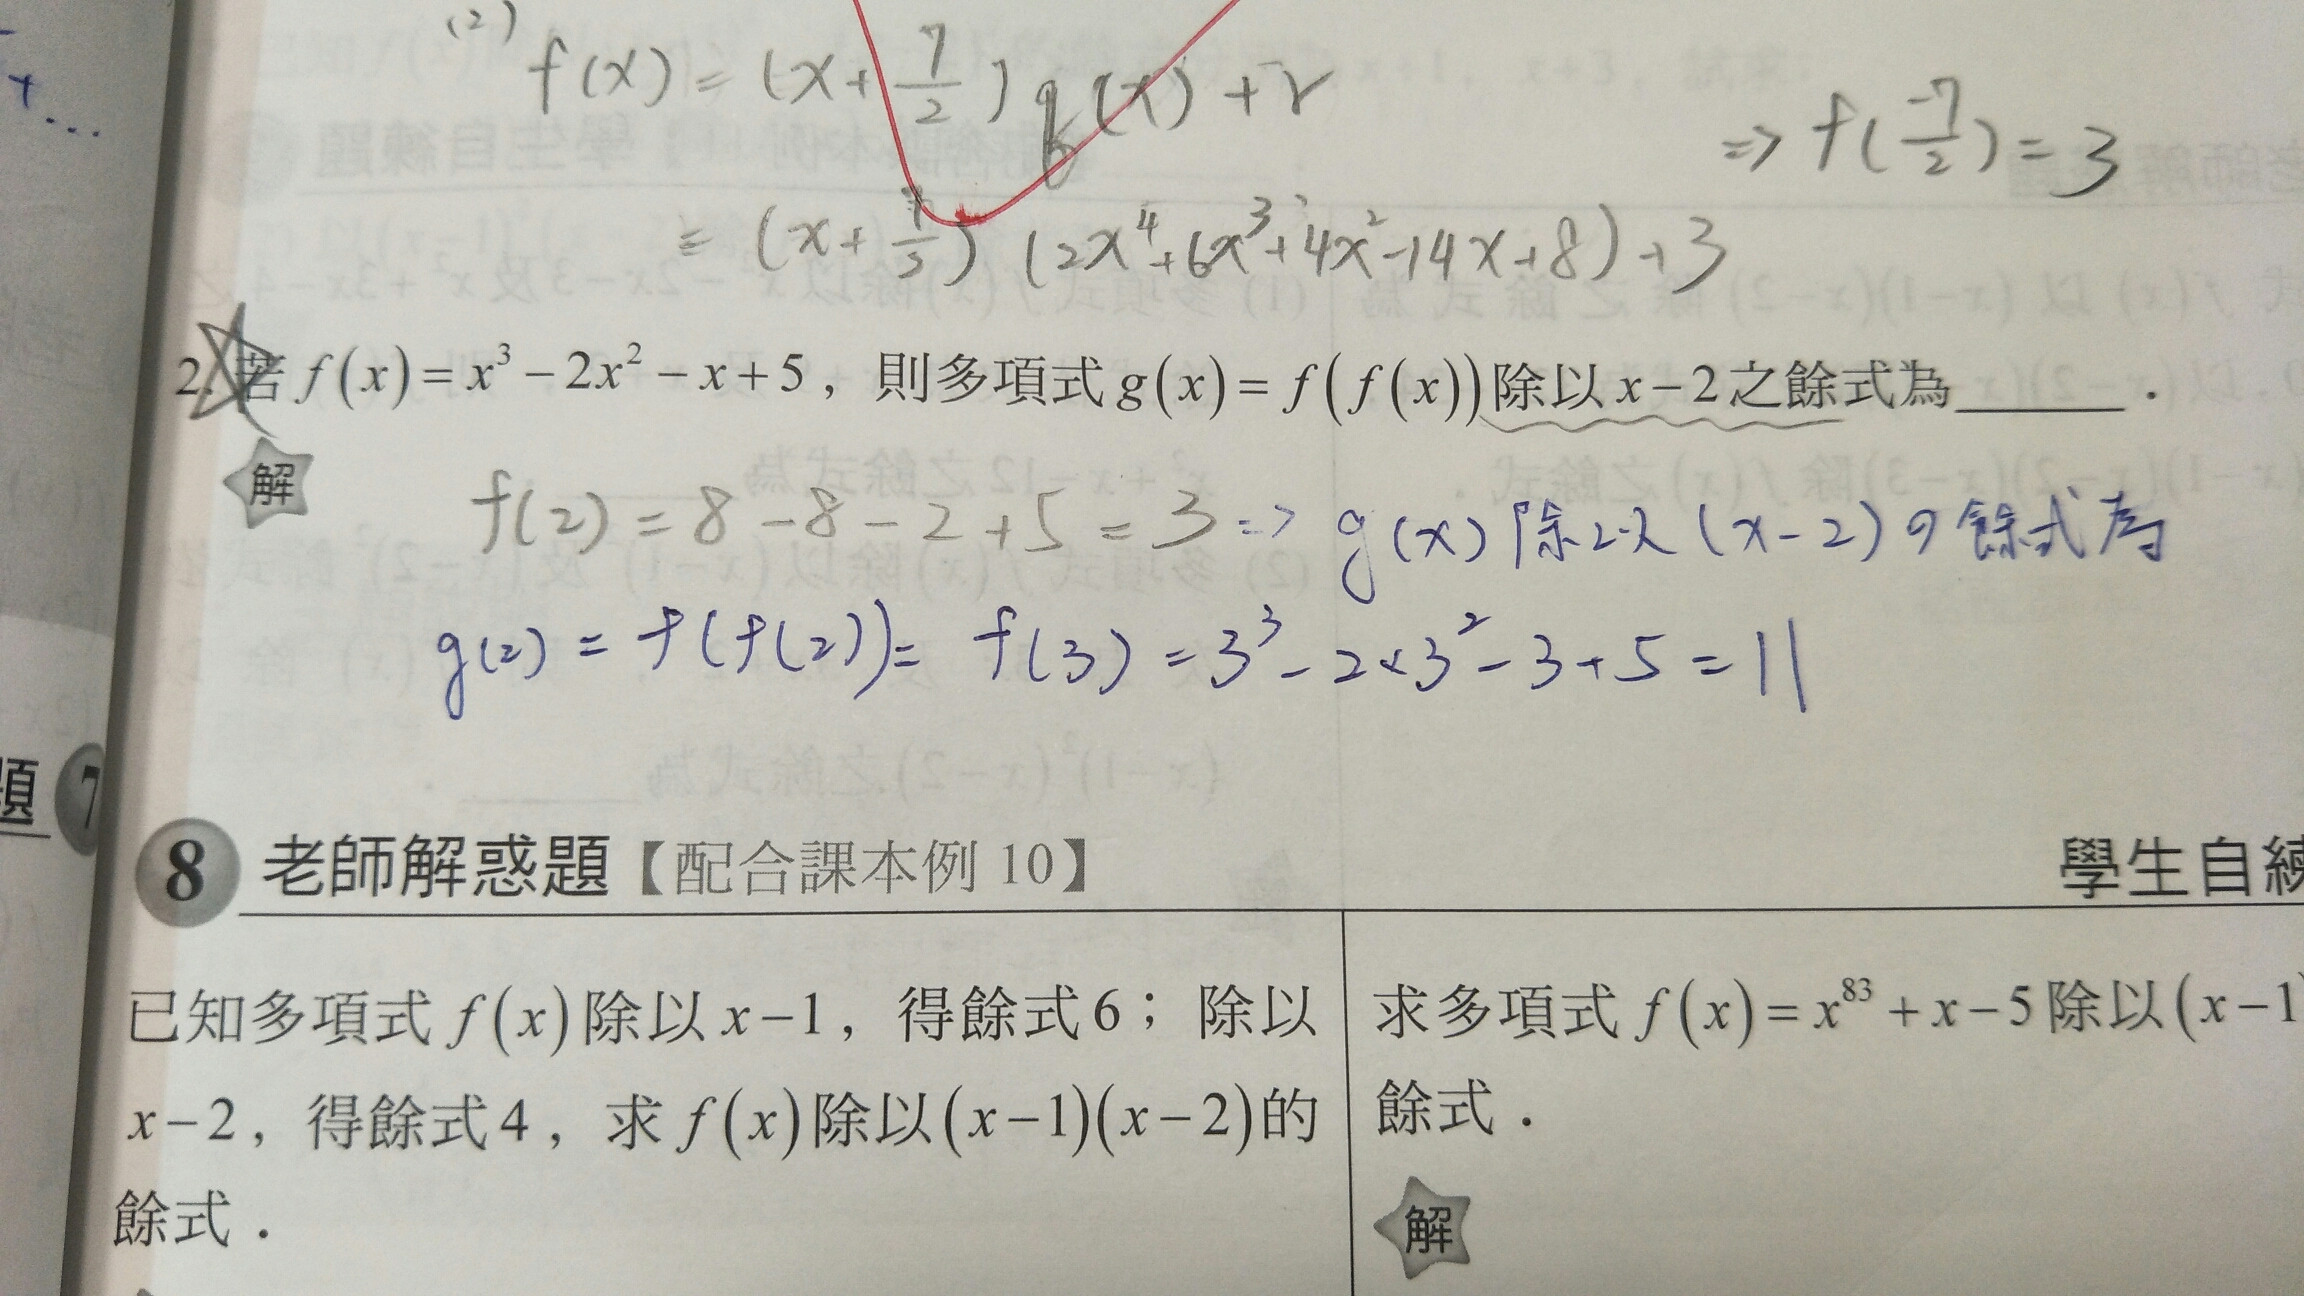 +...
(2) f(x) = (x + 7/2) q(x) + r
⇒ f(-7/2) = 3
= (x + 7/2) (2x⁴ + 6x³ + 4x² - 14x + 8) + 3
2. 若 f(x) = x³ − 2x² − x + 5，則多項式 g(x) = f(f(x)) 除以 x − 2 之餘式為______．
解
f(2) = 8 - 8 - 2 + 5 = 3 => g(x) 除以 (x-2) の餘式為
g(2) = f(f(2)) = f(3) = 3³ - 2×3² - 3 + 5 = 11
題 7
8 老師解惑題【配合課本例 10】
已知多項式 f(x) 除以 x − 1，得餘式 6；除以
x − 2，得餘式 4，求 f(x) 除以 (x − 1)(x − 2) 的
餘式．
學生自練
求多項式 f(x) = x⁸³ + x − 5 除以 (x − 1
餘式．
解